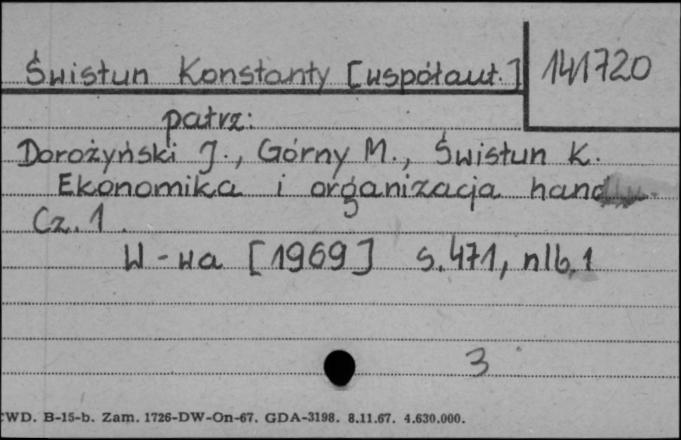 Świstun Konstanty [współaut.] 141720
patrz:
Dorożyński J., Górny M., Świstun K.
Ekonomika i organizacja handlu.
Cz. 1.
W-wa [1969] s. 471, nlb. 1
3
WD. B-15-b. Zam. 1726-DW-On-67. GDA-3198. 8.11.67. 4.630.000.